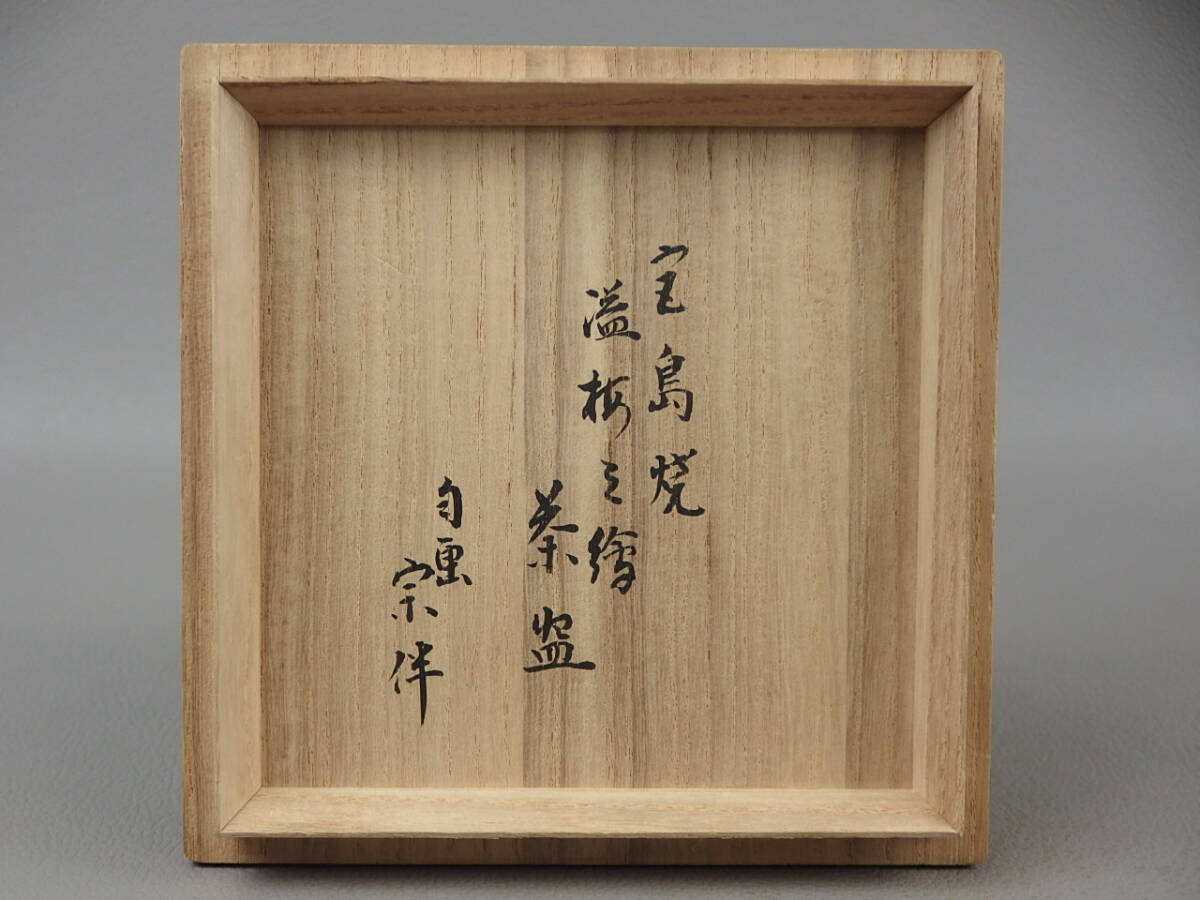 宝島焼
溢梅之繪
茶盌
自画
宗伴